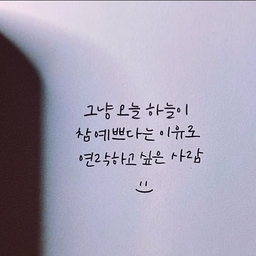 그냥 오늘 하늘이
참 예쁘다는 이유로
연락하고 싶은 사람